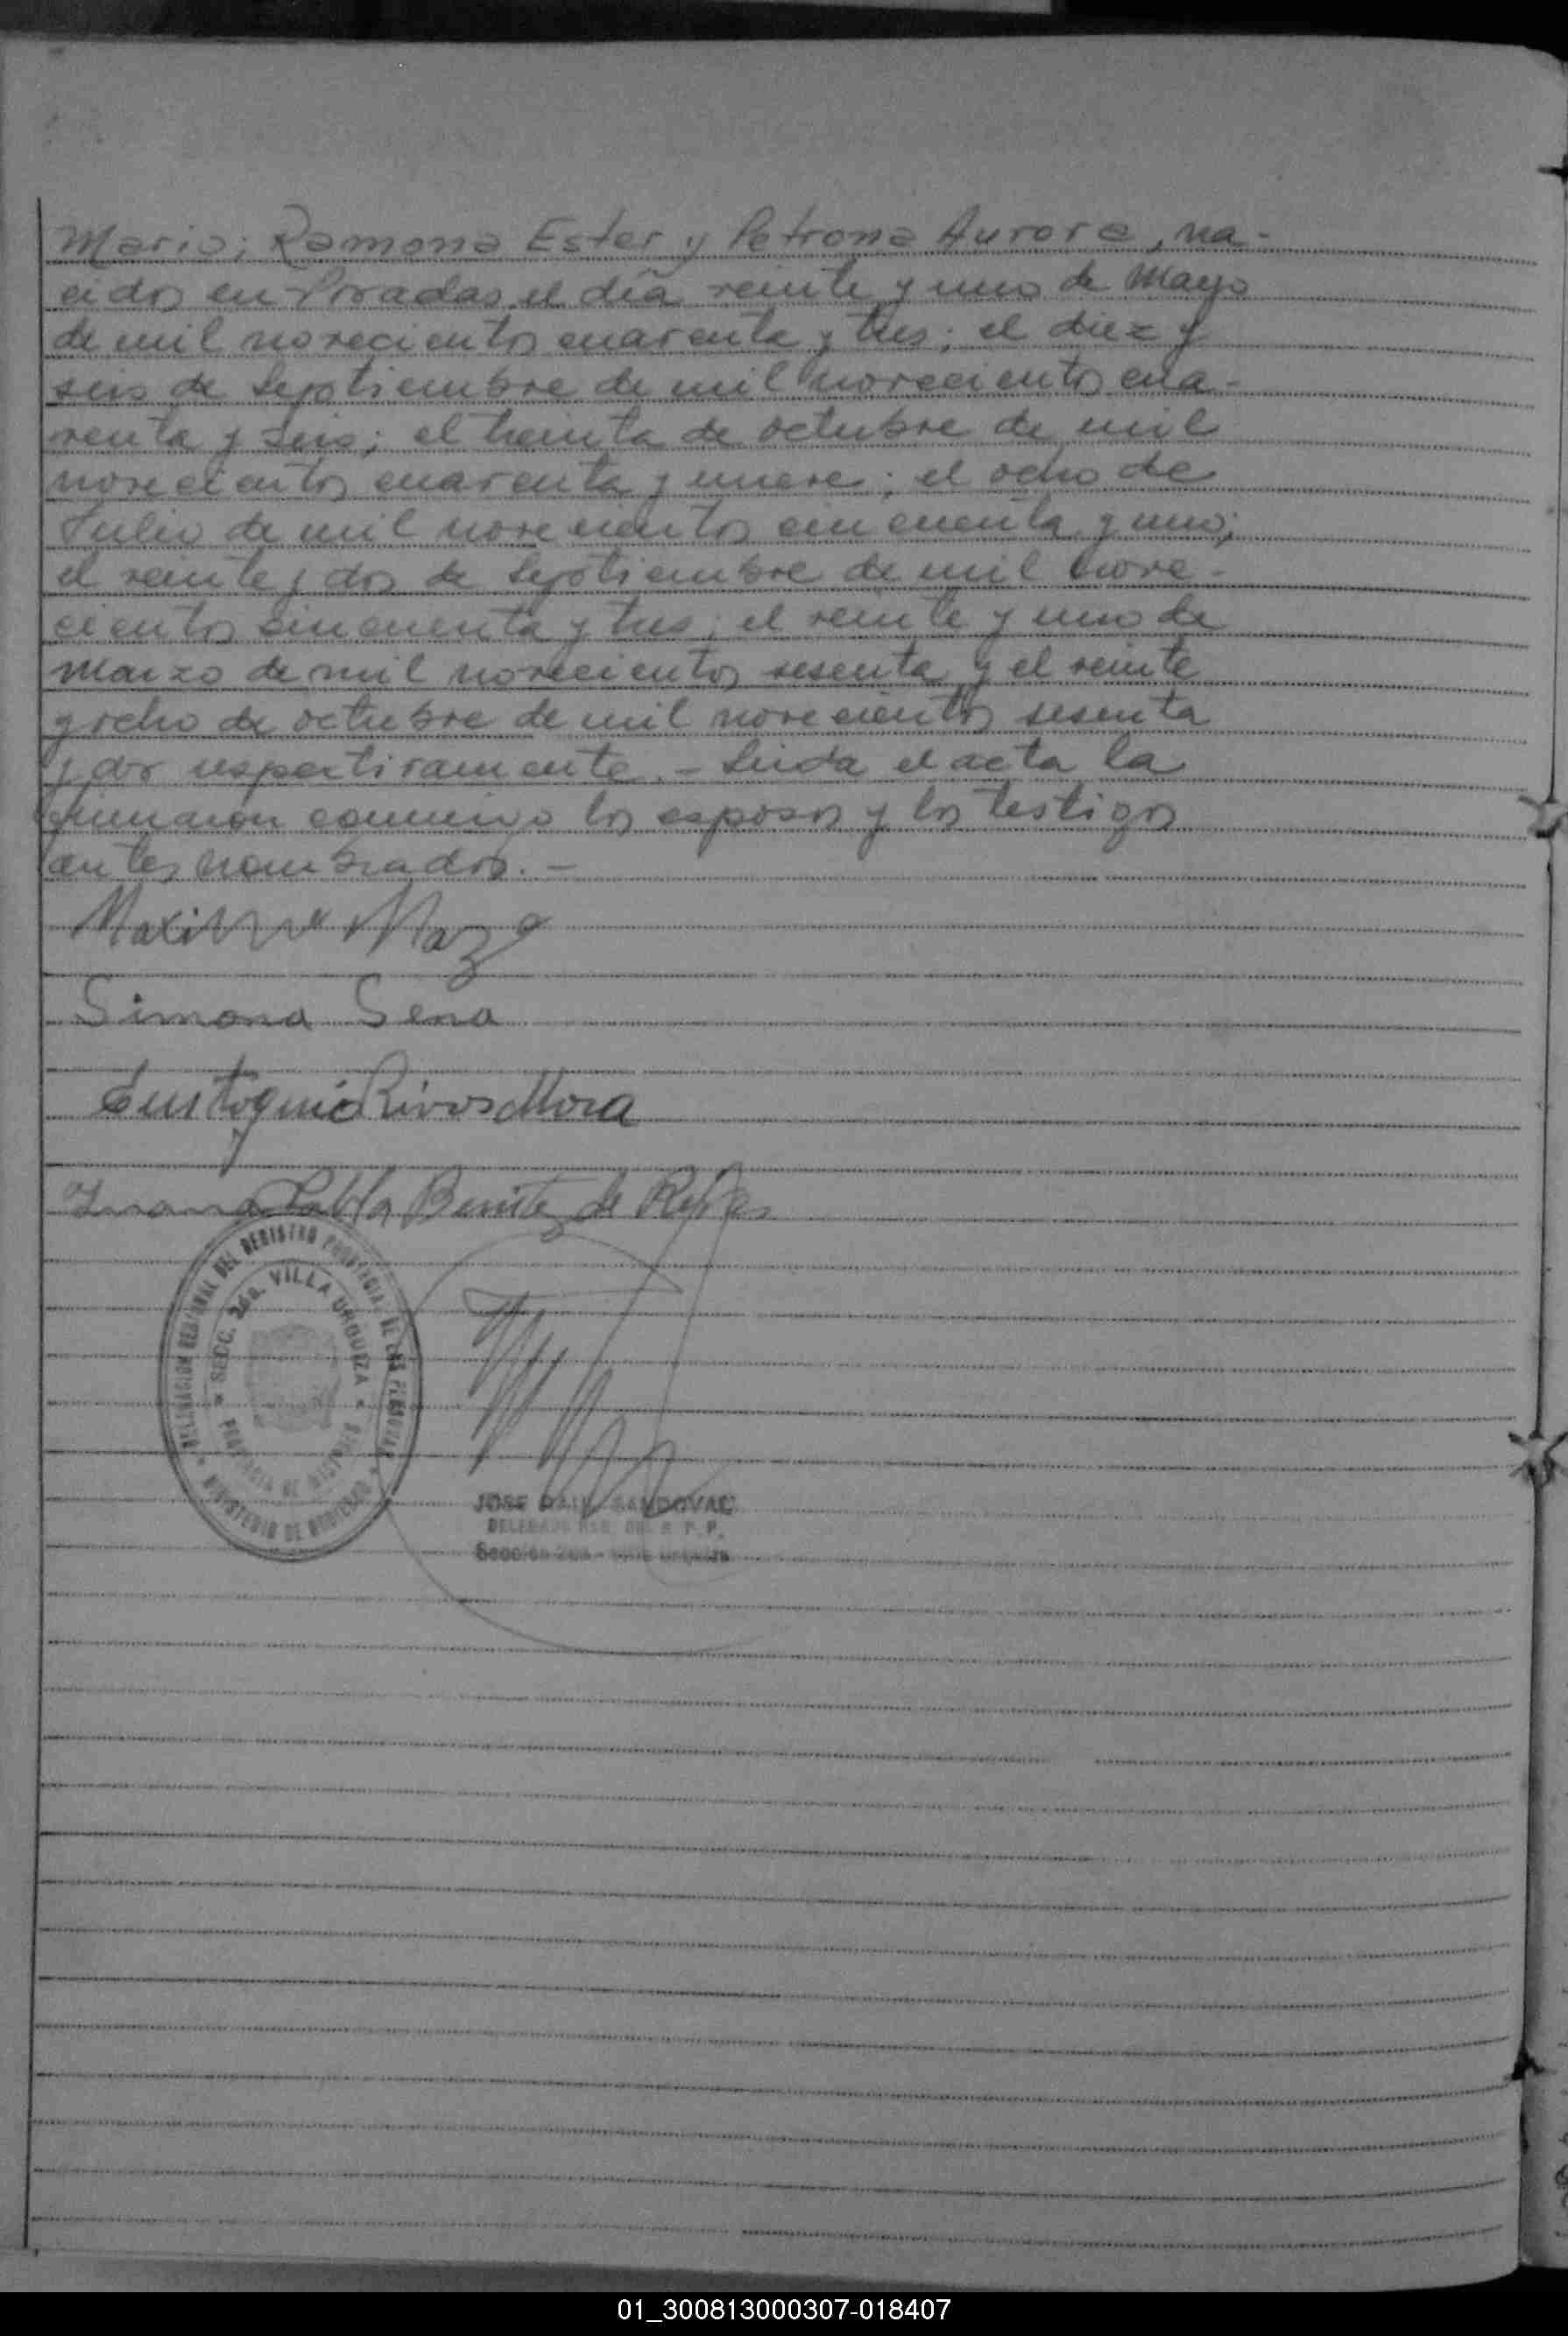 Mario; Ramona Ester y Petrona Aurora, na-
cidos en Posadas el día veinte y uno de Mayo
de mil novecientos cuarenta y tres; el diez y
seis de Septiembre de mil novecientos cua-
renta y seis; el treinta de octubre de mil
novecientos cuarenta y nueve; el ocho de
Julio de mil novecientos cincuenta y uno;
el veinte y dos de Septiembre de mil nove-
cientos cincuenta y tres; el veinte y uno de
Marzo de mil novecientos sesenta y el veinte
y ocho de octubre de mil novecientos sesenta
y dos respectivamente.- Leida el acta la
firmaron conmigo los esposos y los testigos
antes nombrados.-
Maza
Simona Sena
Eustoquio Rivas Mora
Juana Pabla Benitez de
DELEGACION REGIONAL DEL REGISTRO PROVINCIAL DE LAS PERSONAS
SECC. 2da. VILLA URQUIZA
PROVINCIA DE MISIONES
MINISTERIO DE GOBIERNO
JOSE RAUL SANDOVAL
DELEGADO REG. DEL R. P. P.
Sección 2da - Villa Urquiza
01_300813000307-018407